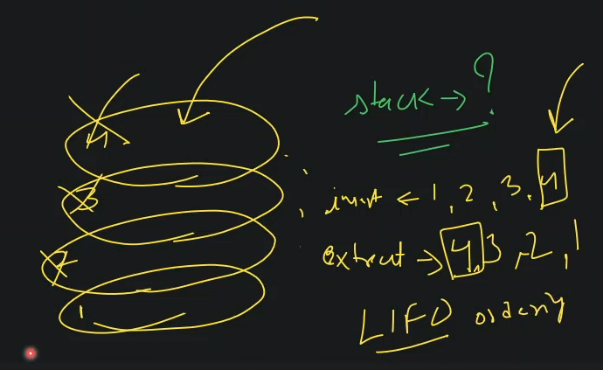 stack → ?
4
3
2
1
insert ← 1, 2, 3, 4
extract → 4, 3, 2, 1
LIFO ordering